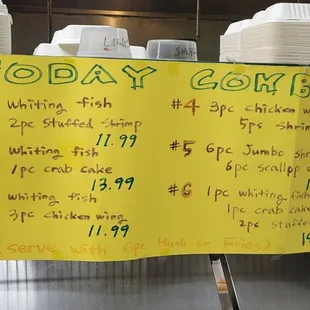 TODAY COMB
Whiting fish
2pc Stuffed shrimp
11.99
Whiting fish
1pc crab cake
13.99
Whiting fish
3pc chicken wing
11.99
#4 3pc chicken w
5ps shri
#5 6pc Jumbo shr
6pc scallop
#6 1pc whiting fish
1pc crab cake
2pc stuffed
(serve with 6pc Hush or Fries)